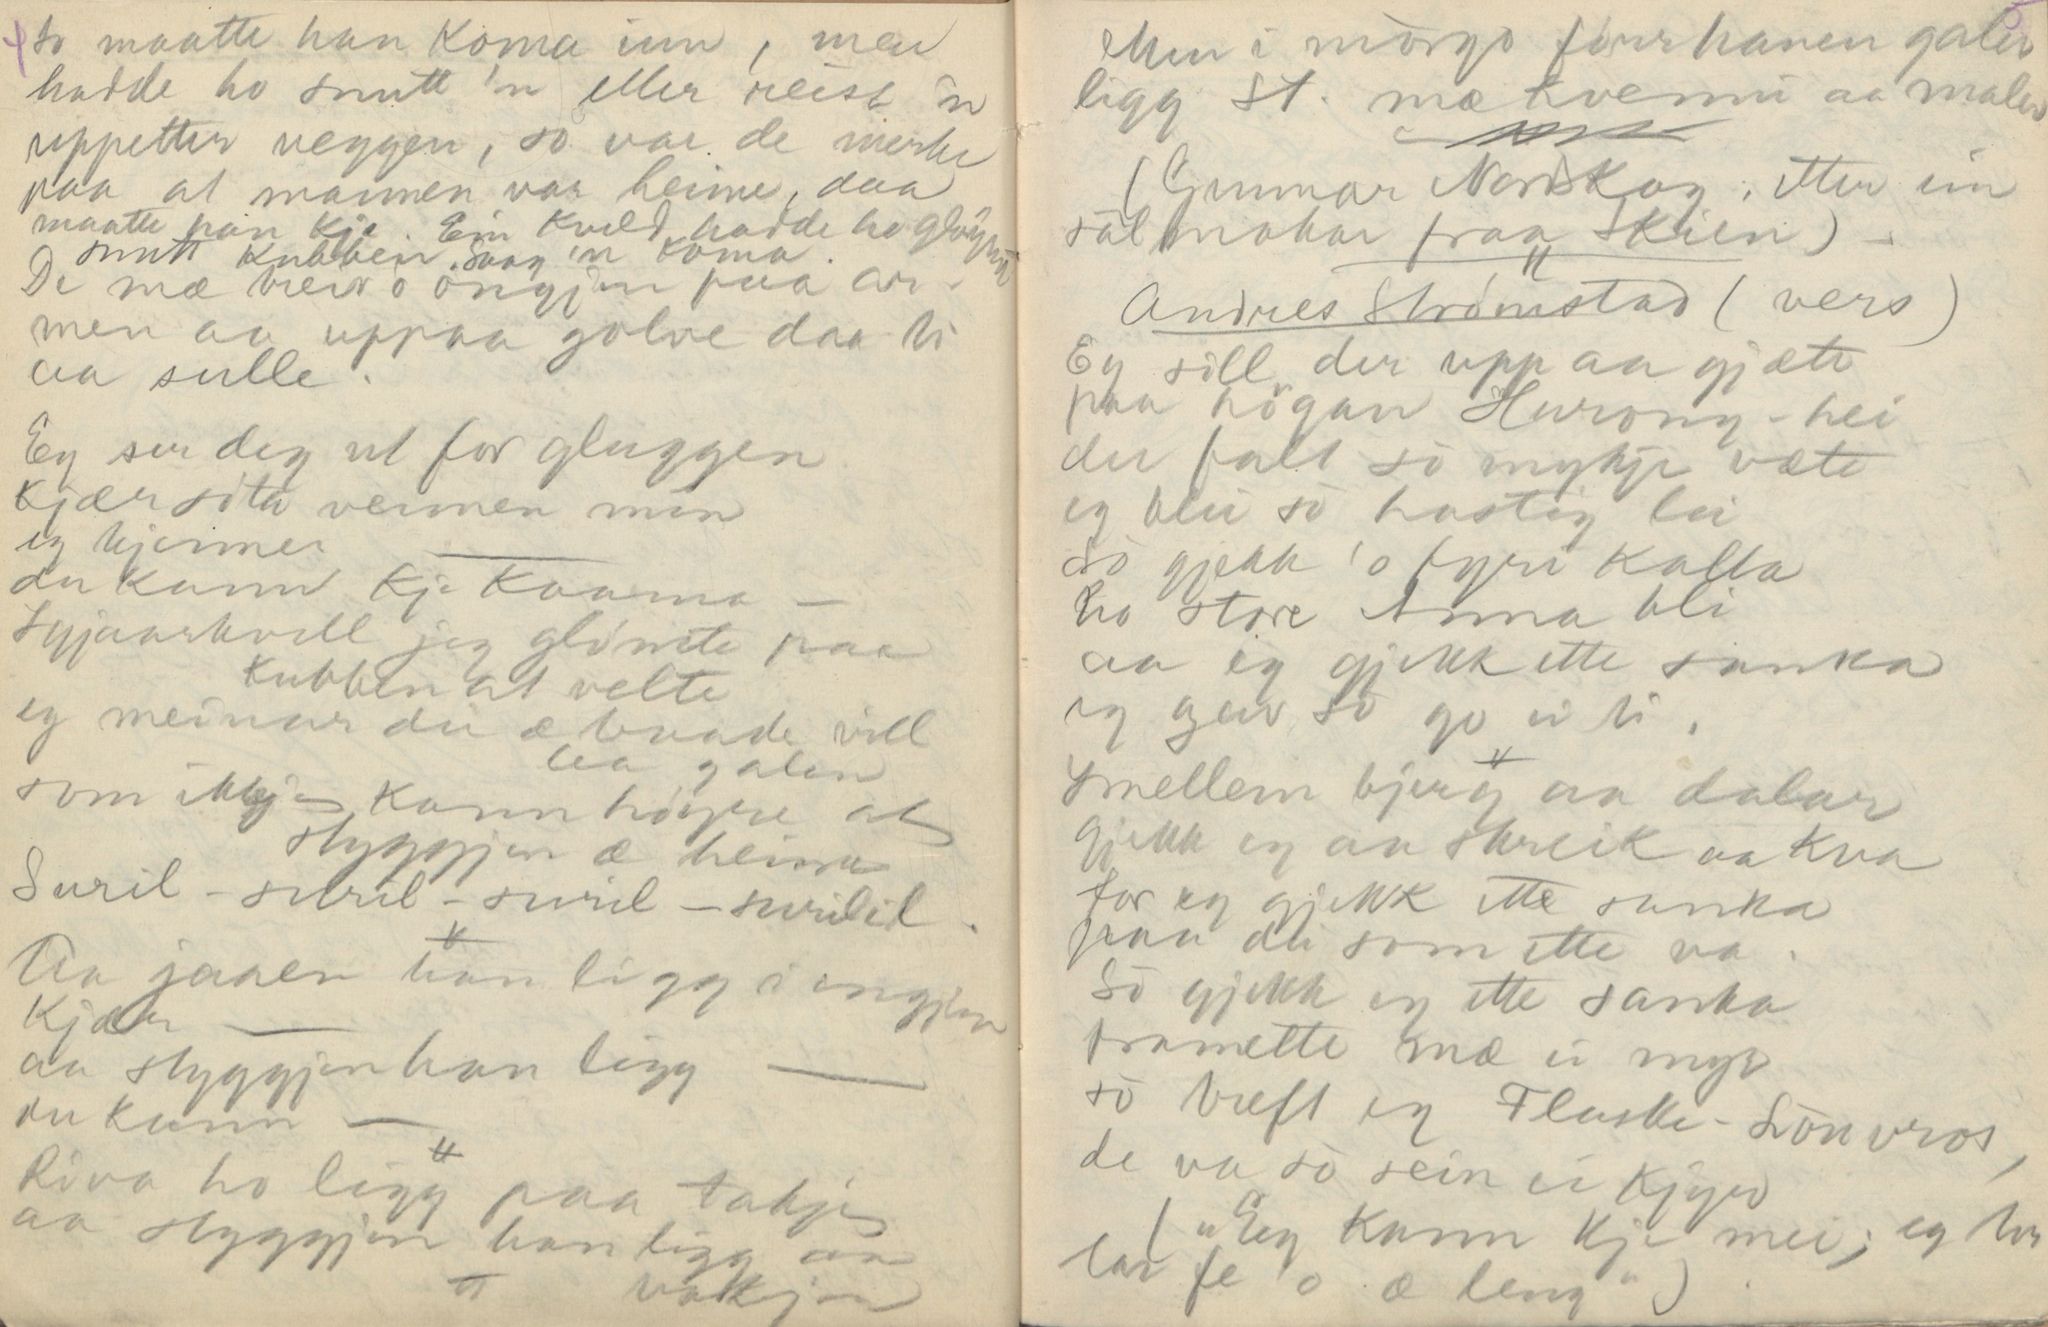 so maatte han koma inn, men
hadde ho snutt 'n eller reist 'n
uppetter veggen, so var de merke
paa at mannen var heime, daa
maatte han kje. Ein kveld hadde ho gløymt
snutt kubben. Saag 'n koma.
De mæ
men aa uppaa golve daa ti
aa sulle.
Eg ser deg ut for gluggen
Kjær
eg kjenner
du kann kje koma —
Igjaarkvell jeg glømte paa
kubben at velte
eg meinar du æ baade vill
aa galen
som ikkje kann høyre at
styggjen æ heime
Suril - suril - suril - surilil.
"
Aa jaaen han ligg i engjen
Kjær —
aa styggjen han ligg —
du kann —
"
Riva ho ligg paa takje
aa styggjen han ligg aa
" vakjen
Men i morgo førr hanen galer
ligg St. mæ kvenni aa maler
(Gunnar Nordskog, etter ein
salmakar fraa Skien) -
"
Andres Strømstad (vers)
Eg sill der upp aa gjæte
paa høgan Hurong-hei
der falt so mykje væte
eg blei so hastig lei
So gjekk 'o fyri Kalla
ho store Anna bli
aa eg gjekk ette sanka
eg gav so go ei ti.
"
Imellem bjerg aa dalar
gjekk eg aa skreik aa kva
for eg gjekk ette sanka
paa di som ette va.
So gjekk eg ette sanka
framette mæ ei myr
so træft eg Flaske-
de va so sein ei kjyr
("Eg kann kje mei; eg
fe 'o æ leng")